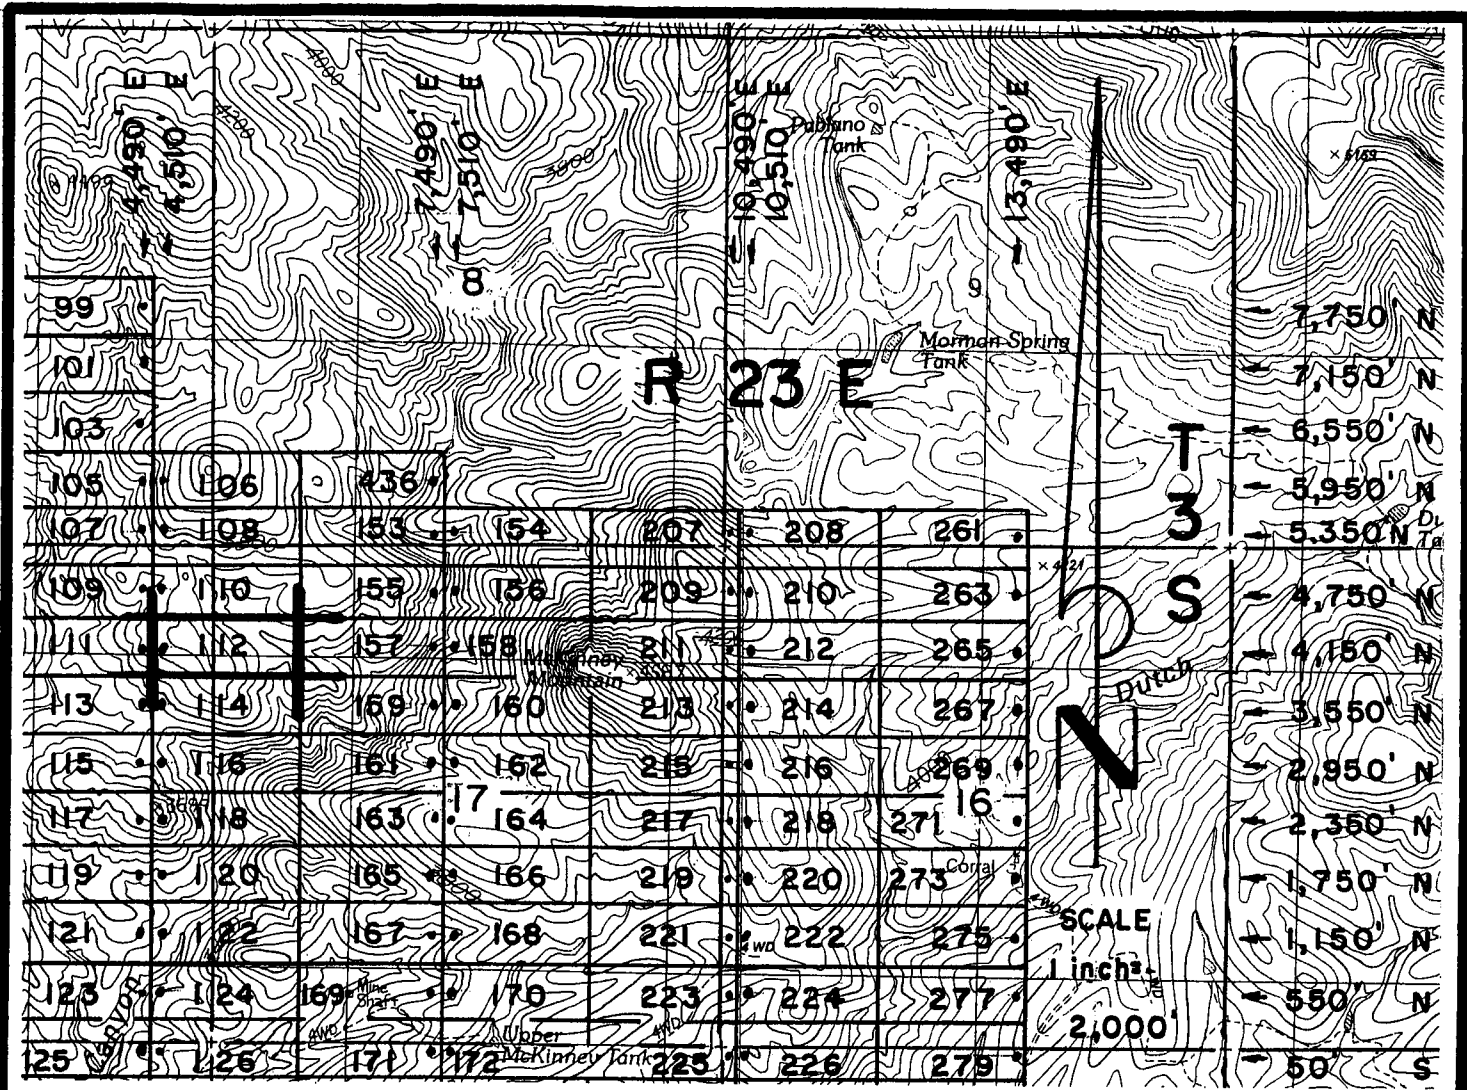 4,490' E
4,510' E
7,490' E
7,510' E
10,490' E
10,510' E
13,490' E
4000
4200
3800
4499
Pablano
Tank
× 5169
8
9
Mormon Spring
Tank
R 23 E
T
3
S
7,750' N
7,150' N
6,550' N
5,950' N
5,350' N
4,750' N
4,150' N
3,550' N
2,950' N
2,350' N
1,750' N
1,150' N
550' N
50' S
99
101
103
105 106 436
107 108 153 154 207 208 261
109 110 155 156 209 210 263
111 112 157 158 211 212 265
McKinney
Mountain
113 114 159 160 213 214 267
115 116 161 162 215 216 269
4000
17
16
117 118 163 164 217 218 271
119 120 165 166 219 220 273
Corral
121 122 167 168 221 222 275
4WD
123 124 169 170 223 224 277
Mine
Shaft
4WD
4WD
Upper
McKinney Tank
Canyon
125 126 171 172 225 226 279
Dutch
N
SCALE
1 inch=
2,000'